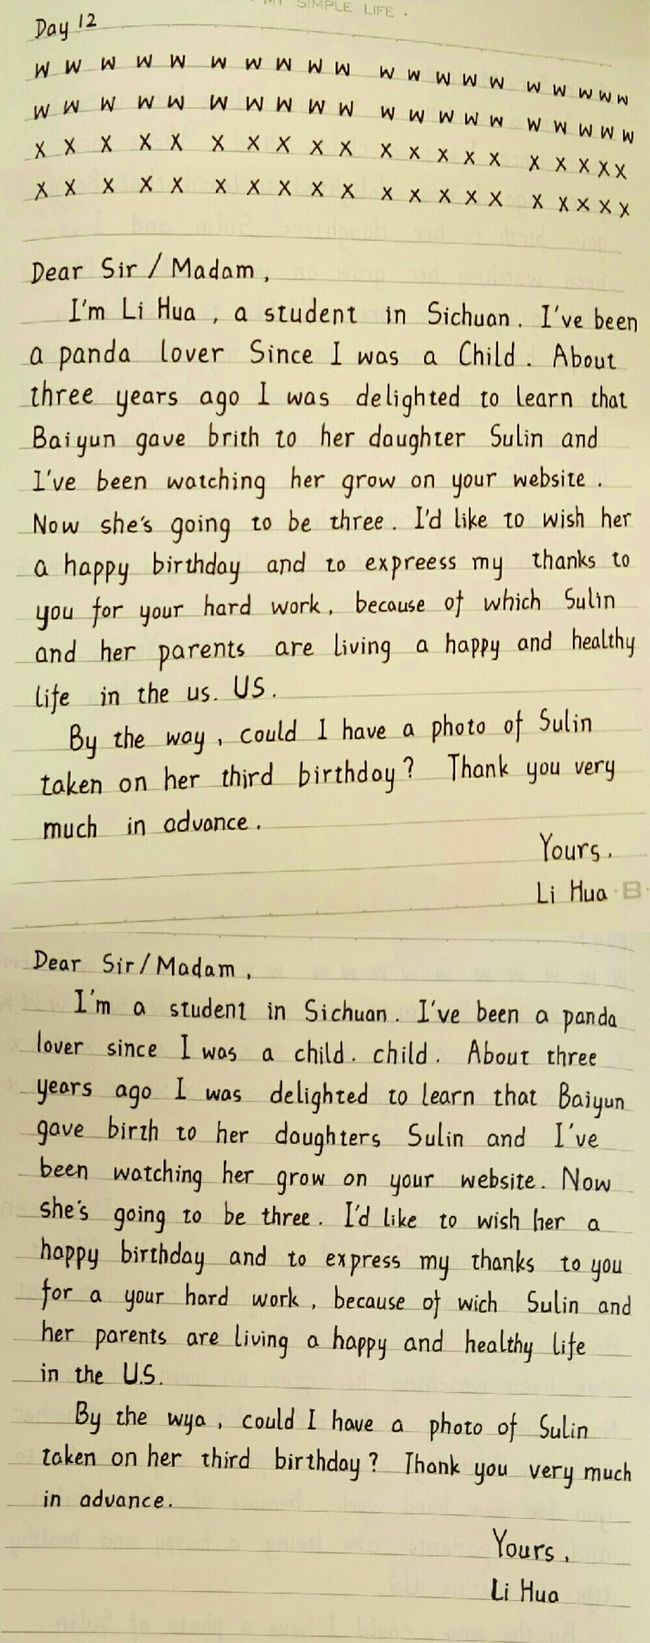 MY SIMPLE LIFE.
Day 12
W W W W W W W W W W W W W W W W W W W W
W W W W W W W W W W W W W W W W W W W W
X X X X X X X X X X X X X X X X X X X X
X X X X X X X X X X X X X X X X X X X X
Dear Sir / Madam,
I'm Li Hua, a student in Sichuan. I've been
a panda lover Since I was a Child. About
three years ago I was delighted to learn that
Baiyun gave brith to her daughter Sulin and
I've been watching her grow on your website.
Now she's going to be three. I'd like to wish her
a happy birthday and to expreess my thanks to
you for your hard work, because of which Sulin
and her parents are living a happy and healthy
life in the us. US.
By the way, could I have a photo of Sulin
taken on her third birthday? Thank you very
much in advance.
Yours,
Li Hua
B
Dear Sir/Madam,
I'm a student in Sichuan. I've been a panda
lover since I was a child. child. About three
years ago I was delighted to learn that Baiyun
gave birth to her daughters Sulin and I've
been watching her grow on your website. Now
she's going to be three. I'd like to wish her a
happy birthday and to express my thanks to you
for a your hard work, because of wich Sulin and
her parents are living a happy and healthy life
in the U.S.
By the wya, could I have a photo of Sulin
taken on her third birthday? Thank you very much
in advance.
Yours,
Li Hua